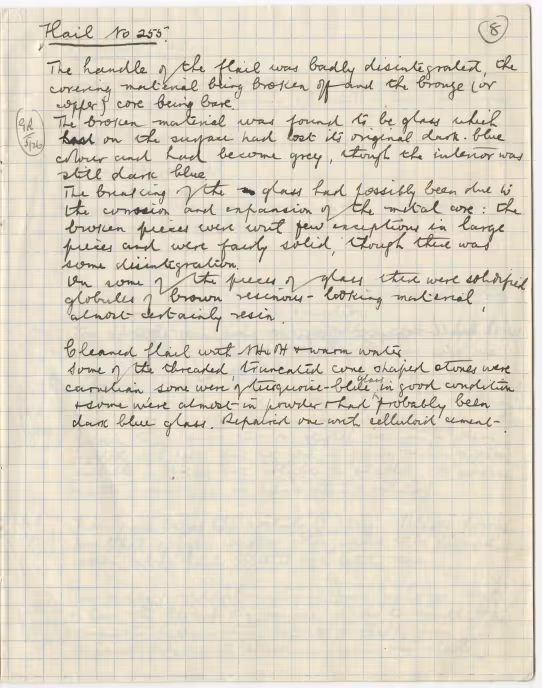 Flail No 255.
8
The handle of the flail was badly disintegrated, the
covering material being broken off and the bronze (or
copper) core being bare.
The broken material was found to be glass which
on the surface had lost its original dark-blue
colour and had become grey, though the interior was
still dark blue
The breaking of the glass had possibly been due to
the corrosion and expansion of the metal core: the
broken pieces were with few exceptions in large
pieces and were fairly solid, though there was
some disintegration.
On some of the pieces of glass there were solidified
globules of brown resinous-looking material,
almost certainly resin.
Cleaned flail with NH4OH + warm water
Some of the threaded truncated cone shaped stones were
carnelian some were of turquoise-blue glass in good condition
+ some were almost in powder + had probably been
dark blue glass. Repaired one with celluloid cement.